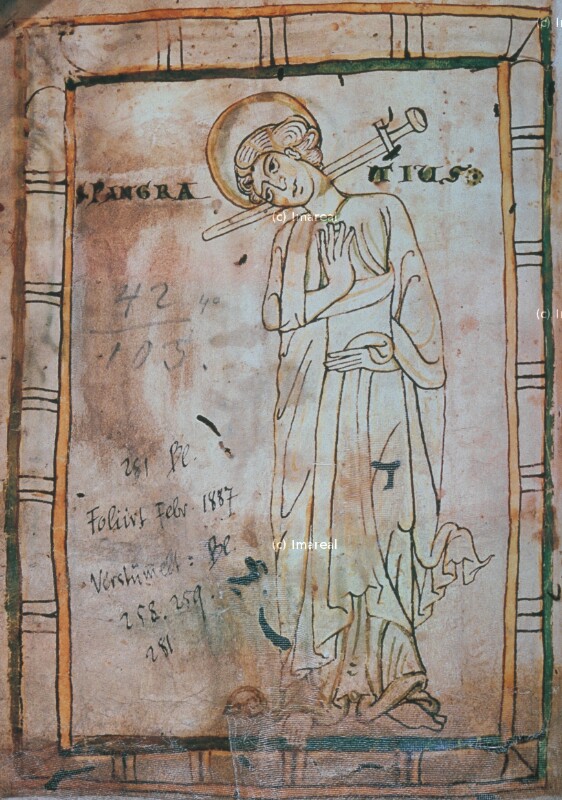 (c) Imareal
S PANGRA TIUS
(c) Imareal
(c) I
42 40
103.
281 Bl.
Foliirt Febr 1887
Verstümelt: Bl.
258. 259
281
(c) Imareal